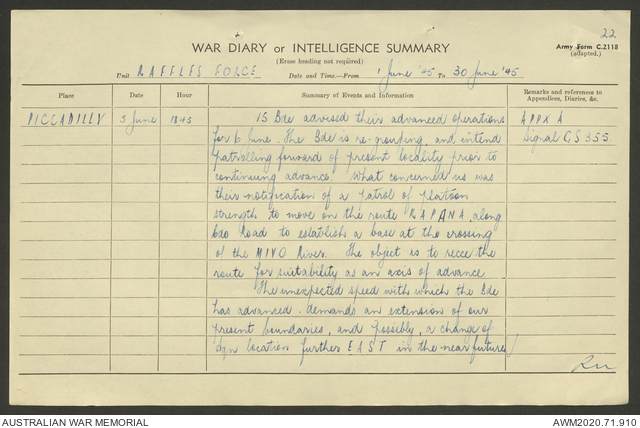 22
WAR DIARY or INTELLIGENCE SUMMARY
Army Form C.2118
(Erase heading not required)
(adapted.)
Unit RAFFLES FORCE Date and Time.—From 1 June '45 To 30 June '45
Place Date Hour Summary of Events and Information Remarks and references to Appendices, Diaries, &c.
PICCADILLY 5 June 1845 15 Bde advised their advanced operations APPX A
for 6 June. The Bde is re-grouping, and intend Signal GS 355
patrolling forward of present locality prior to
continuing advance. What concerned us was
their notification of a patrol of platoon
strength to move on the route RAPANA, along
Road to establish a base at the crossing
of the MIVO River. The object is to recce the
route for suitability as an axis of advance
The unexpected speed with which the Bde
has advanced. demands an extension of our
present boundaries, and possibly, a change of
location further EAST in the near future
AUSTRALIAN WAR MEMORIAL AWM2020.71.910